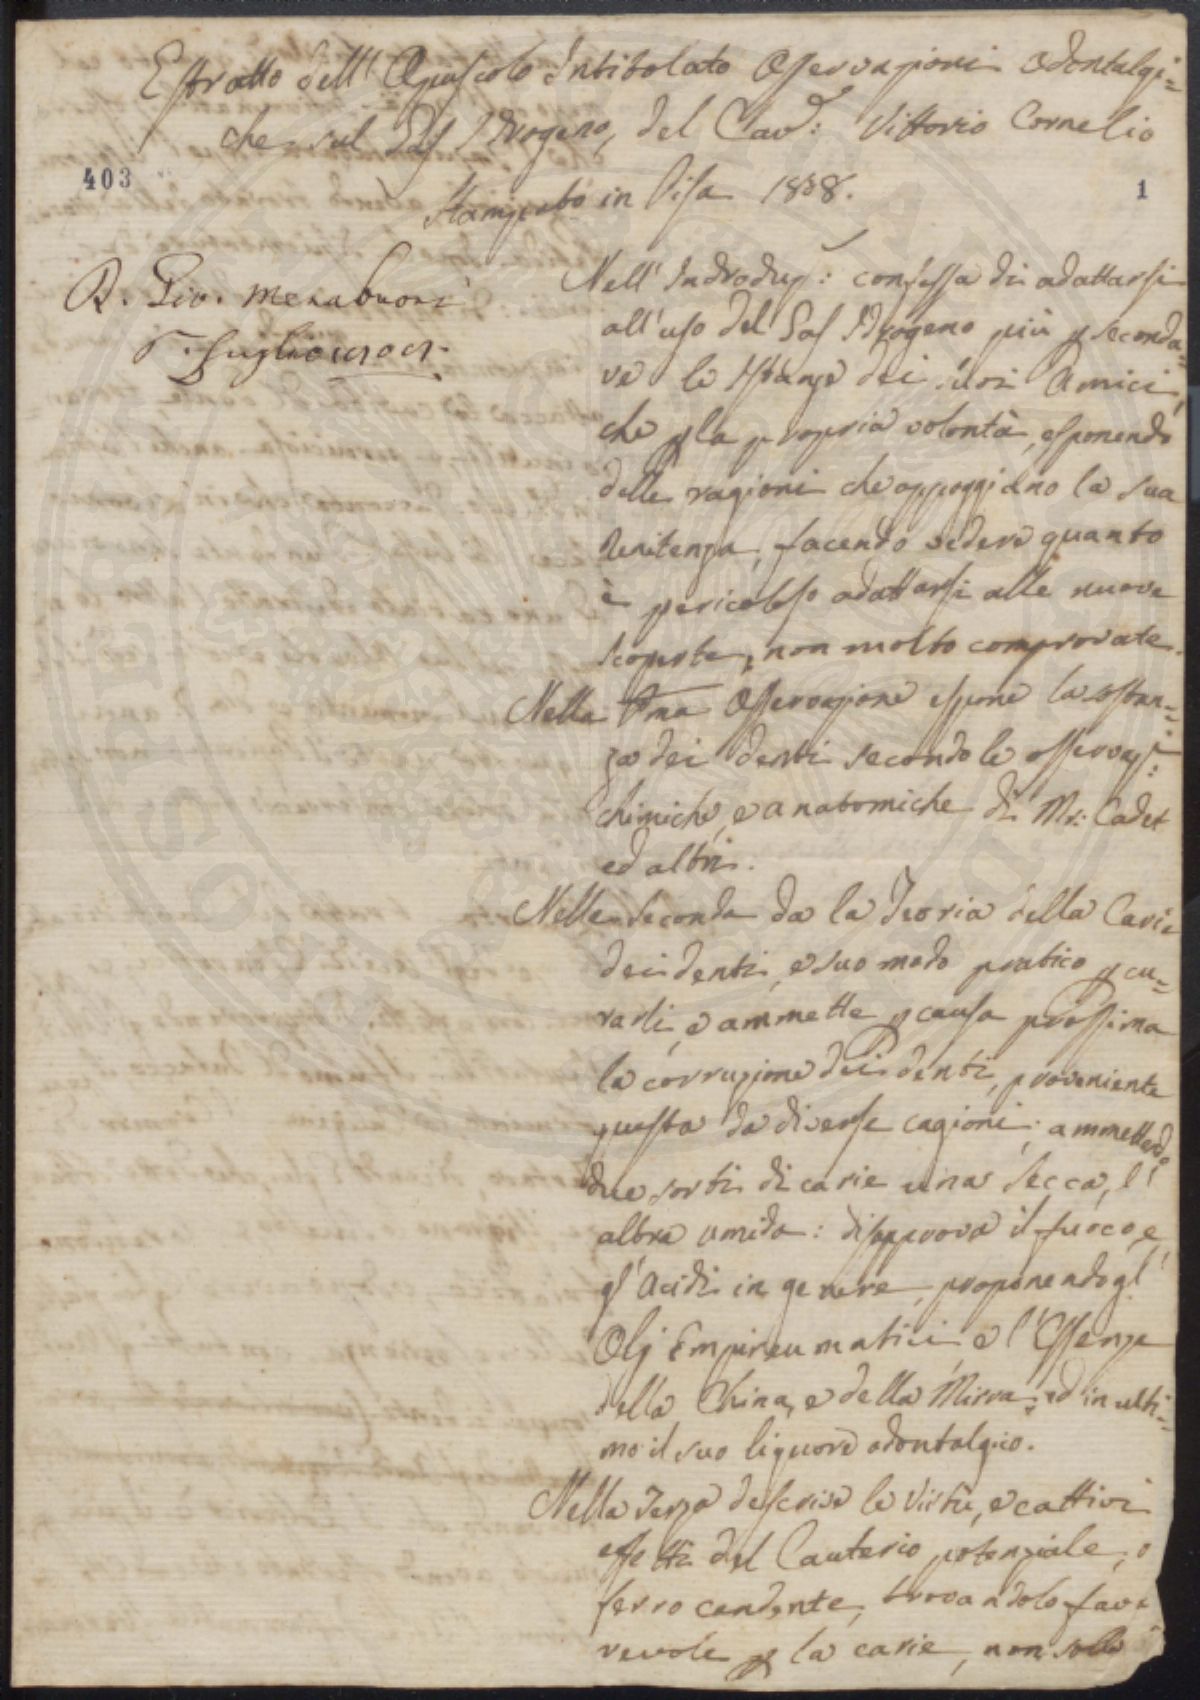 Estratto dell' Opuscolo Intitolato Osservazioni Odontalgi=
che sul Gas Idrogeno, del Cav.: Vittorio Cornelio
Stampato in Pisa 1808.
403
1
R. Gio. Menabuoni
Nell' Indroduz: confessa di adattarsi
all' uso del Gas Idrogeno più p seconda=
re le istanze dei suoi Amici,
che p la propria volontà, esponendo
delle ragioni che appoggiano la sua
Renitenza, facendo vedere quanto
è pericoloso adattarsi alle nuove
scoperte, non molto comprovate.
Nella Pma Osservazione espone la sostan=
za dei denti secondo le osservaz:
chimiche, e anatomiche di Mr: Cadet
ed altri.
Nella Seconda da la Teoria della Carie
dei denti, e suo modo pratico p cu=
rarli, e ammette p causa prossima
la corruzione dei denti, proveniente
questa da diverse cagioni; ammettendo
due sorti di carie una secca, l'
altra umida: disapprova il fuoco, e
gl' Acidi in genere, proponendo gl'
Olj Empireumatici, e l' Essenze
della China, e della Mirra, ed in ulti=
mo il suo liquore odontalgico.
Nella Terza descrive le Virtù, e cattivi
effetti del Cauterio potenziale, o
ferro candente, trovandolo favo
revole p la carie, non solo